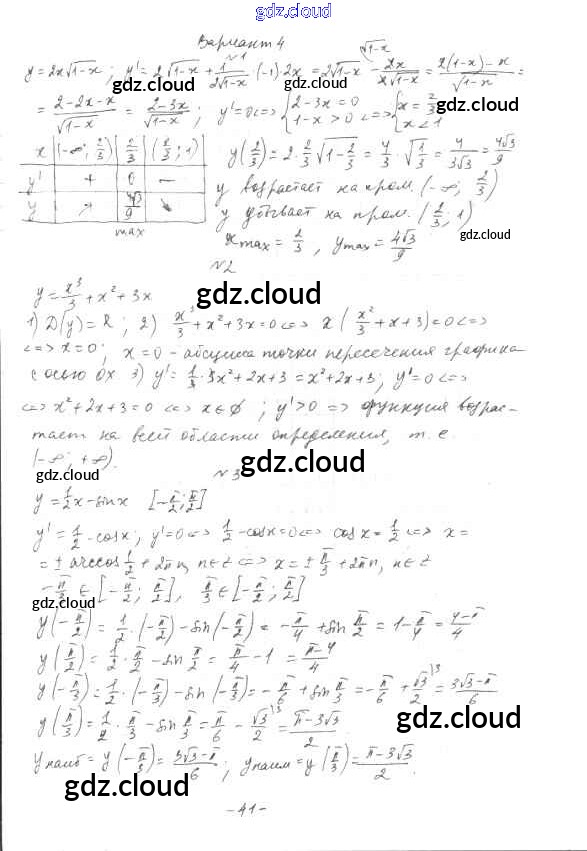 gdz.cloud
Вариант 4
№1
y=2x√(1-x) ; y'=2√(1-x) + 1/(2√(1-x)) ·(-1)·2x = 2√(1-x) - 2x/(2√(1-x)) = (2(1-x)-x)/√(1-x) =
= (2-2x-x)/√(1-x) = (2-3x)/√(1-x) ; y'=0 <=> {2-3x=0 1-x>0 <=> {x=2/3 x<1
gdz.cloud gdz.cloud gdz.cloud
x | (-∞; 2/3) | 2/3 | (2/3; 1)
y' | + | 0 | –
y | ↗ | 4√3/9 | ↘
max
y(2/3) = 2·2/3 √(1-2/3) = 4/3 · √(1/3) = 4/(3√3) = 4√3/9
y возрастает на пром. (-∞; 2/3)
y убывает на пром. (2/3; 1)
x max = 2/3 , y max = 4√3/9
gdz.cloud
№2
y = x³/3 + x² + 3x
gdz.cloud gdz.cloud
1) D(y)=R ; 2) x³/3 + x² + 3x = 0 <=> x (x²/3 + x + 3) = 0 <=>
<=> x=0 ; x=0 – абсцисса точки пересечения графика
с осью Ox 3) y' = 1/3 · 3x² + 2x + 3 = x² + 2x + 3 ; y'=0 <=>
<=> x² + 2x + 3 = 0 <=> x ∈ ∅ ; y'>0 => функция возрас-
тает на всей области определения, т. е.
(-∞; +∞).
gdz.cloud
№3
y = 1/2 x - sin x [-π/2; π/2]
y' = 1/2 - cos x ; y'=0 <=> 1/2 - cos x = 0 <=> cos x = 1/2 <=> x =
= ± arccos 1/2 + 2πn, n∈Z <=> x = ± π/3 + 2πn, n∈Z
-π/3 ∈ [-π/2; π/2], π/3 ∈ [-π/2; π/2]
gdz.cloud gdz.cloud
y(-π/2) = 1/2 · (-π/2) - sin(-π/2) = -π/4 + sin π/2 = 1 - π/4 = (4-π)/4
y(π/2) = 1/2 · π/2 - sin π/2 = π/4 - 1 = (π-4)/4
y(-π/3) = 1/2 · (-π/3) - sin(-π/3) = -π/6 + sin π/3 = -π/6 + √3/2 \3 = (3√3-π)/6
y(π/3) = 1/2 · π/3 - sin π/3 = π/6 - √3/2 \3 = (π-3√3)/2
gdz.cloud
y наиб = y(-π/3) = (3√3-π)/6 ; y наим = y(π/3) = (π-3√3)/2 .
gdz.cloud
-41-
gdz.cloud